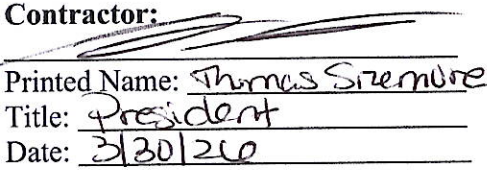 Contractor:
Printed Name: Thomas Sizemore
Title: President
Date: 3/30/26